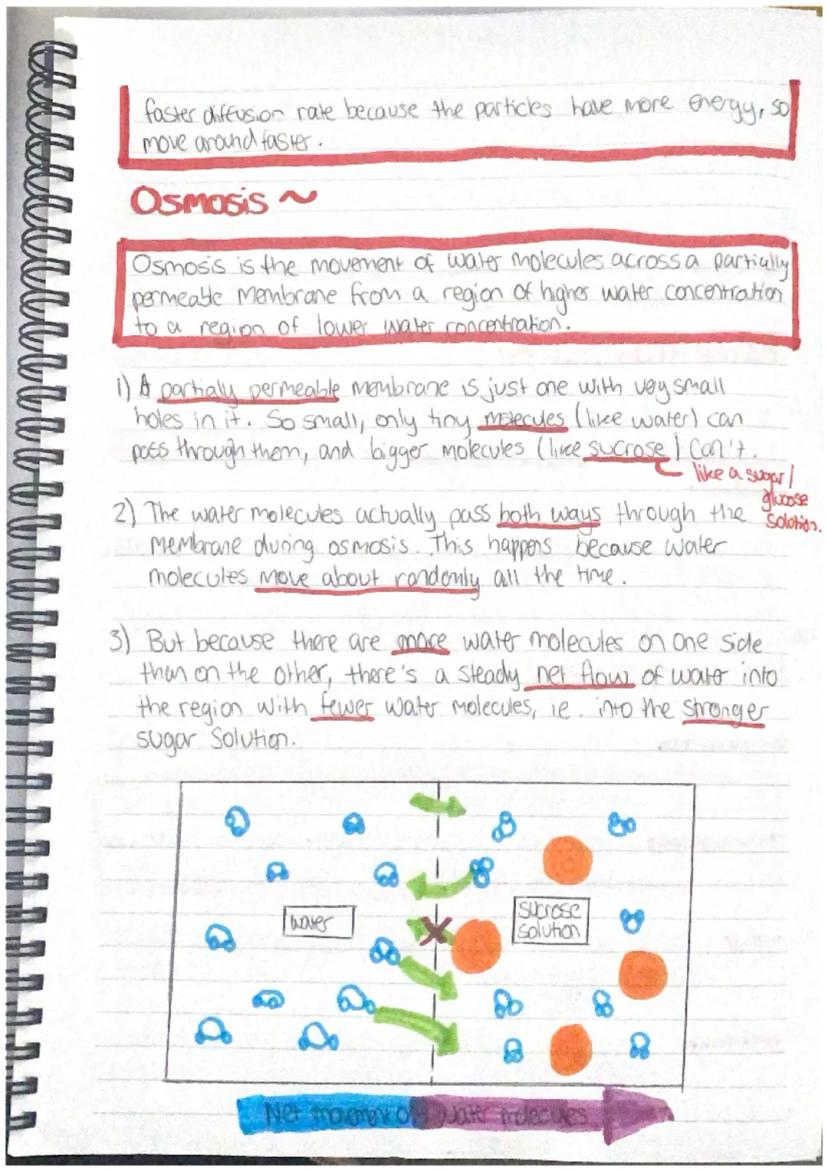 faster diffusion rate because the particles have more energy, so
move around faster.
Osmosis ~
Osmosis is the movement of water molecules across a partially
permeable membrane from a region of higher water concentration
to a region of lower water concentration.
1) A partially permeable membrane is just one with very small
holes in it. So small, only tiny molecules (like water) can
pass through them, and bigger molecules (like sucrose) can't.
like a sugar/
glucose
solution.
2) The water molecules actually pass both ways through the
membrane during osmosis. This happens because water
molecules move about randomly all the time.
3) But because there are more water molecules on one side
than on the other, there's a steady net flow of water into
the region with fewer water molecules, ie. into the stronger
sugar solution.
water
sucrose
solution
Net movement of water molecules